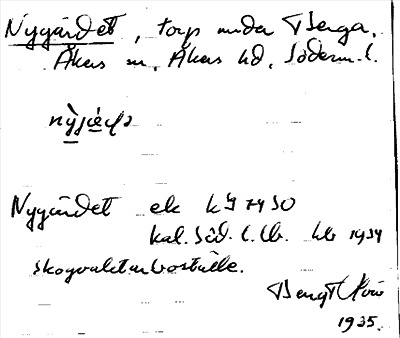 Nygärdet, torp under Berga,
Åkers sn, Åkers hd, Söderm. l.
Nygärdet ek
kal. Söd. l. lb. hb 1934
skogvaktarboställe.
Bengt
1935.